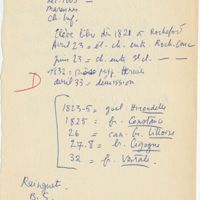 Ch. Inf.
Elève libre dès 1821 à Rochefort
Avril 23 = el. ch. ent. Roch. Conc
juin 23 = ch. ents st cl. — —
D 1832 = Hercule
avril 33 = démission
1823-5 = goel Hirondelle
1825 = fr. Constance
26 = can. br. Lilloise
27.8 = br. Cigogne
32 = fr. Vestale
Rainguet
B. S.